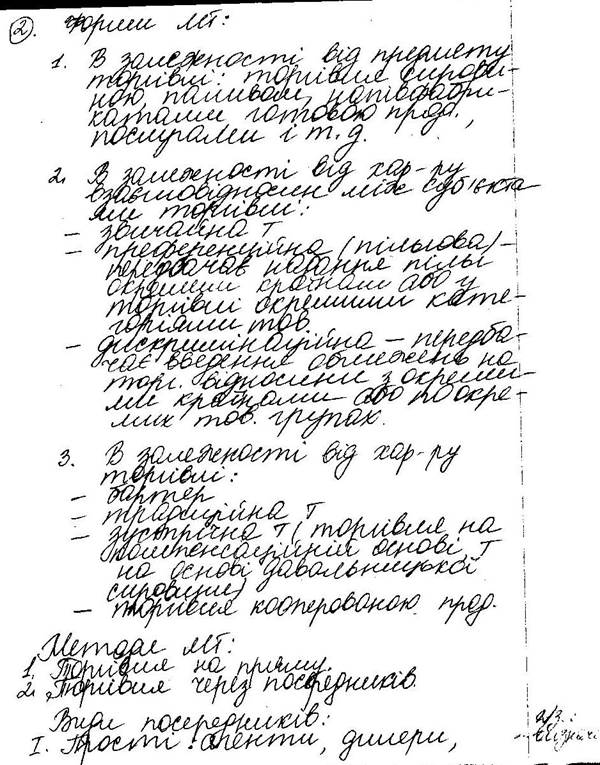 2. Форми МТ:
1. В залежності від предмету
торгівлі: торгівля сирови-
ною, паливом, напівфабри-
катами, готовою прод.,
послугами і т.д.
2. В залежності від хар-ру
взаємовідносин між суб'єкта
ми торгівлі:
- звичайна Т
- преференційна (пільгова) -
передбачає надання пільг
окремим країнам або у
торгівлі окремими кате-
горіями тов.
- дискримінаційна - передба-
чає введення обмежень на
торг. відносини з окреми-
ми країнами або по окре-
мих тов. групах.
3. В залежності від хар-ру
торгівлі:
- бартер
- традиційна Т
- зустрічна Т (торгівля на
компенсаційній основі, Т
на основі давальницької
сировини)
- торгівля кооперованою прод.
Методи МТ:
1. Торгівля на пряму.
2. Торгівля через посередників.
Види посередників:
I. Прості: агенти, дилери,
д/з.: